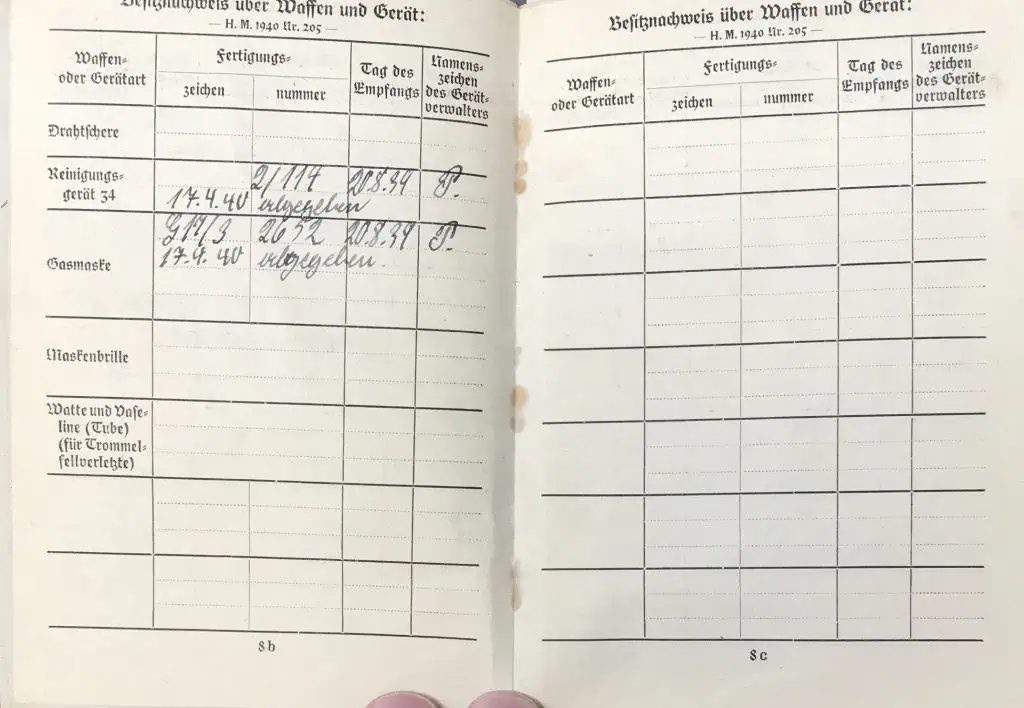 Besitznachweis über Waffen und Gerät:
— H. M. 1940 Nr. 205 —
Waffen-
oder Gerätart
Fertigungs-
zeichen
nummer
Tag des
Empfangs
Namens-
zeichen
des Gerät-
verwalters
Drahtschere
Reinigungs-
gerät 34
2/114 20.8.39 P.
17.4.40 abgegeben
Gasmaske
G17/3 2652 20.8.39 P.
17.4.40 abgegeben.
Maskenbrille
Watte und Vase-
line (Tube)
(für Trommel-
fellverletzte)
8 b
Besitznachweis über Waffen und Gerät:
— H. M. 1940 Nr. 205 —
Waffen-
oder Gerätart
Fertigungs-
zeichen
nummer
Tag des
Empfangs
Namens-
zeichen
des Gerät-
verwalters
8 c